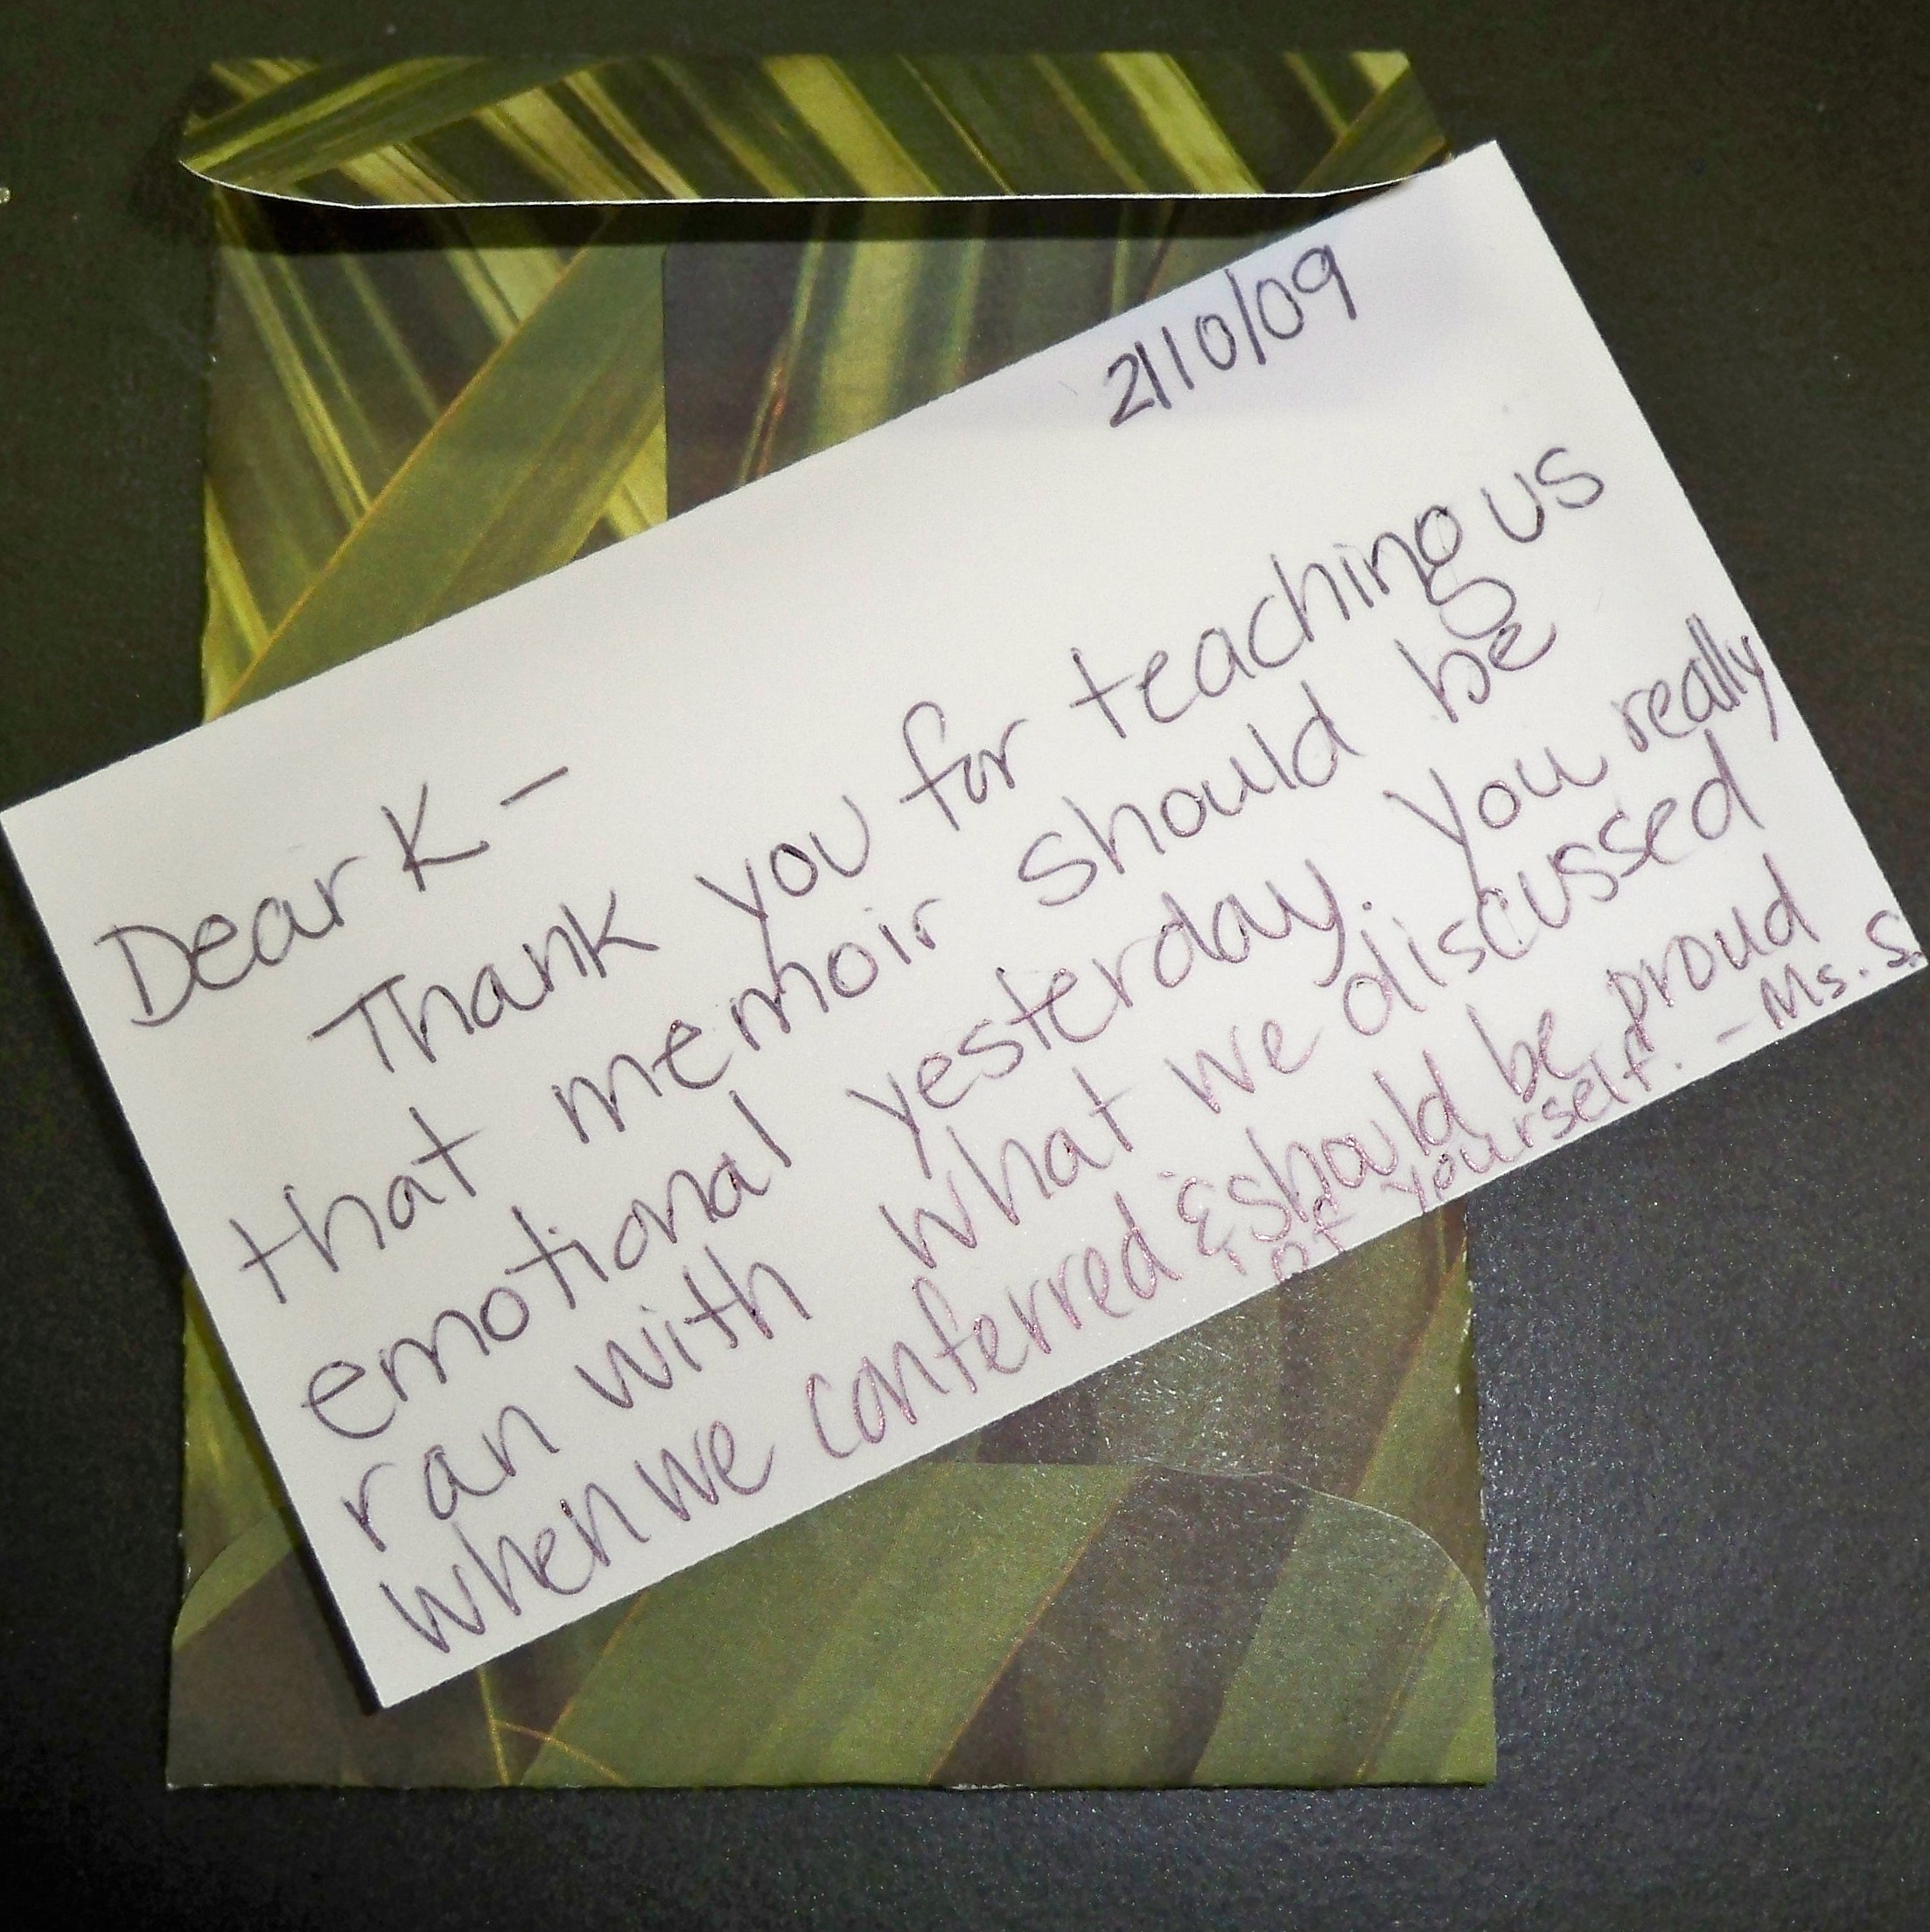 2/10/09
Dear K -
Thank you for teaching us
that memoir should be
emotional yesterday. You really
ran with what we discussed
when we conferred & should be proud
of yourself. - Ms. S.